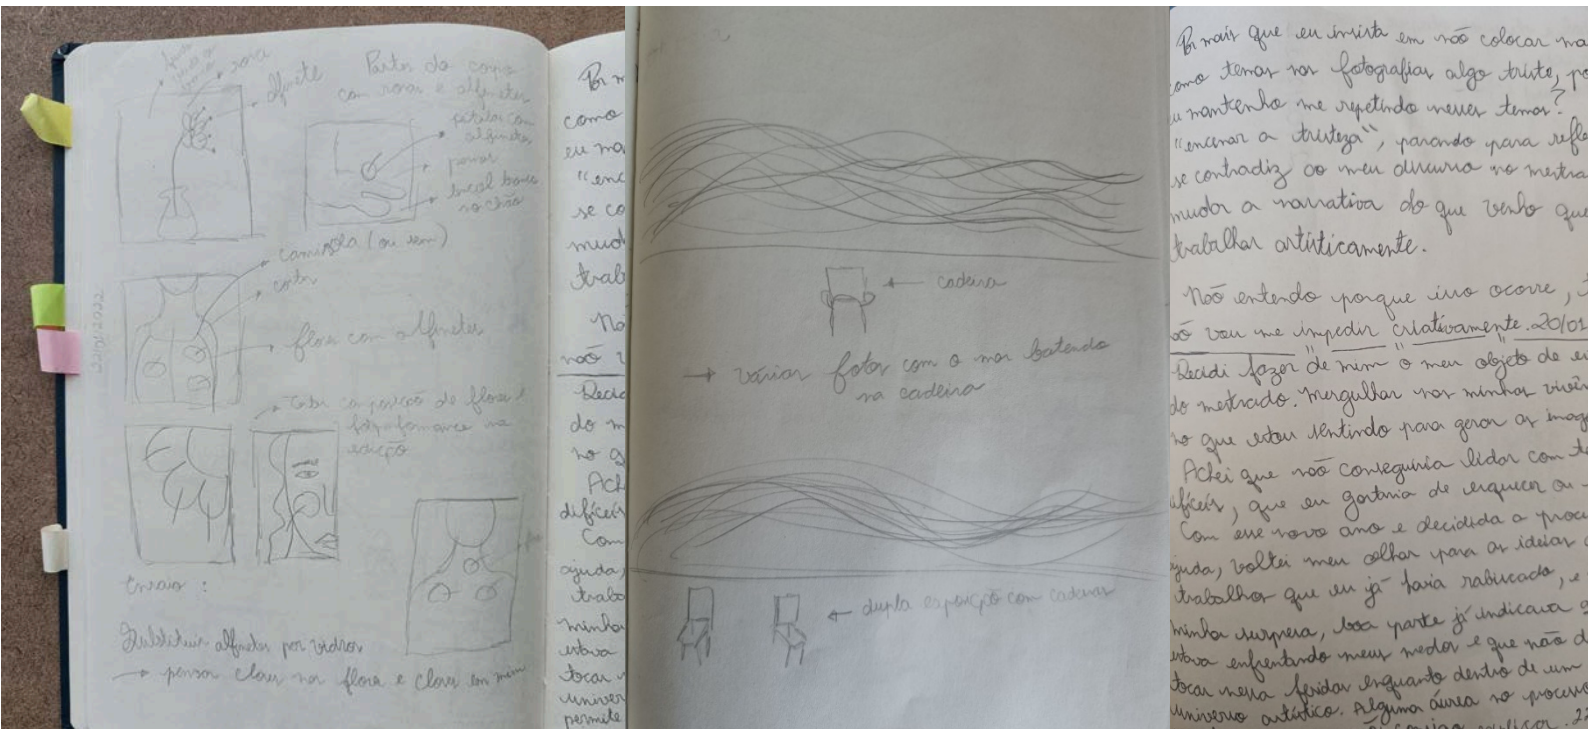 rosa
alfinete
Partes do corpo
com rosas e alfinetes
pétalas com
alfinetes
tecido branco
no chão
camisola (ou sem)
costas
flores com alfinetes
22/01/2022
composição de flores e
fotoperformance na
edição
Ensaio :
Substituir alfinetes por vidros
→ pensar closes nas flores e closes em mim
Por m
como
eu ma
"enc
se co
mud
trab
Nã
não v
Decid
do m
no q
Ach
difíceis
Com
ajuda,
traba
minha
estava
tocar n
univer
permite
← cadeira
→ várias fotos com o mar batendo
na cadeira
← dupla exposição com cadeiras
Por mais que eu insista em não colocar ma
como temas nos fotografias algo triste, po
eu mantenho me repetindo nesses temas?
"encenar a tristeza", parando para refle
se contradiz ao meu discurso no mestra
mudar a narrativa do que venho que
trabalhar artisticamente.
Não entendo porque isso ocorre,
não vou me impedir criativamente. 20/01
Decidi fazer de mim o meu objeto de es
do mestrado. Mergulhar nas minhas vivên
no que estou sentindo para gerar as imag
Achei que não conseguiria lidar com te
difíceis, que eu gostaria de esquecer ou
Com esse novo ano e decidida a procu
ajuda, voltei meu olhar para as ideias
trabalhos que eu já havia rabiscado, e
minha surpresa, boa parte já indicava q
estava enfrentando meus medos e que não d
tocar nessa feridas enquanto dentro de um
universo artístico. Alguma áurea no processo